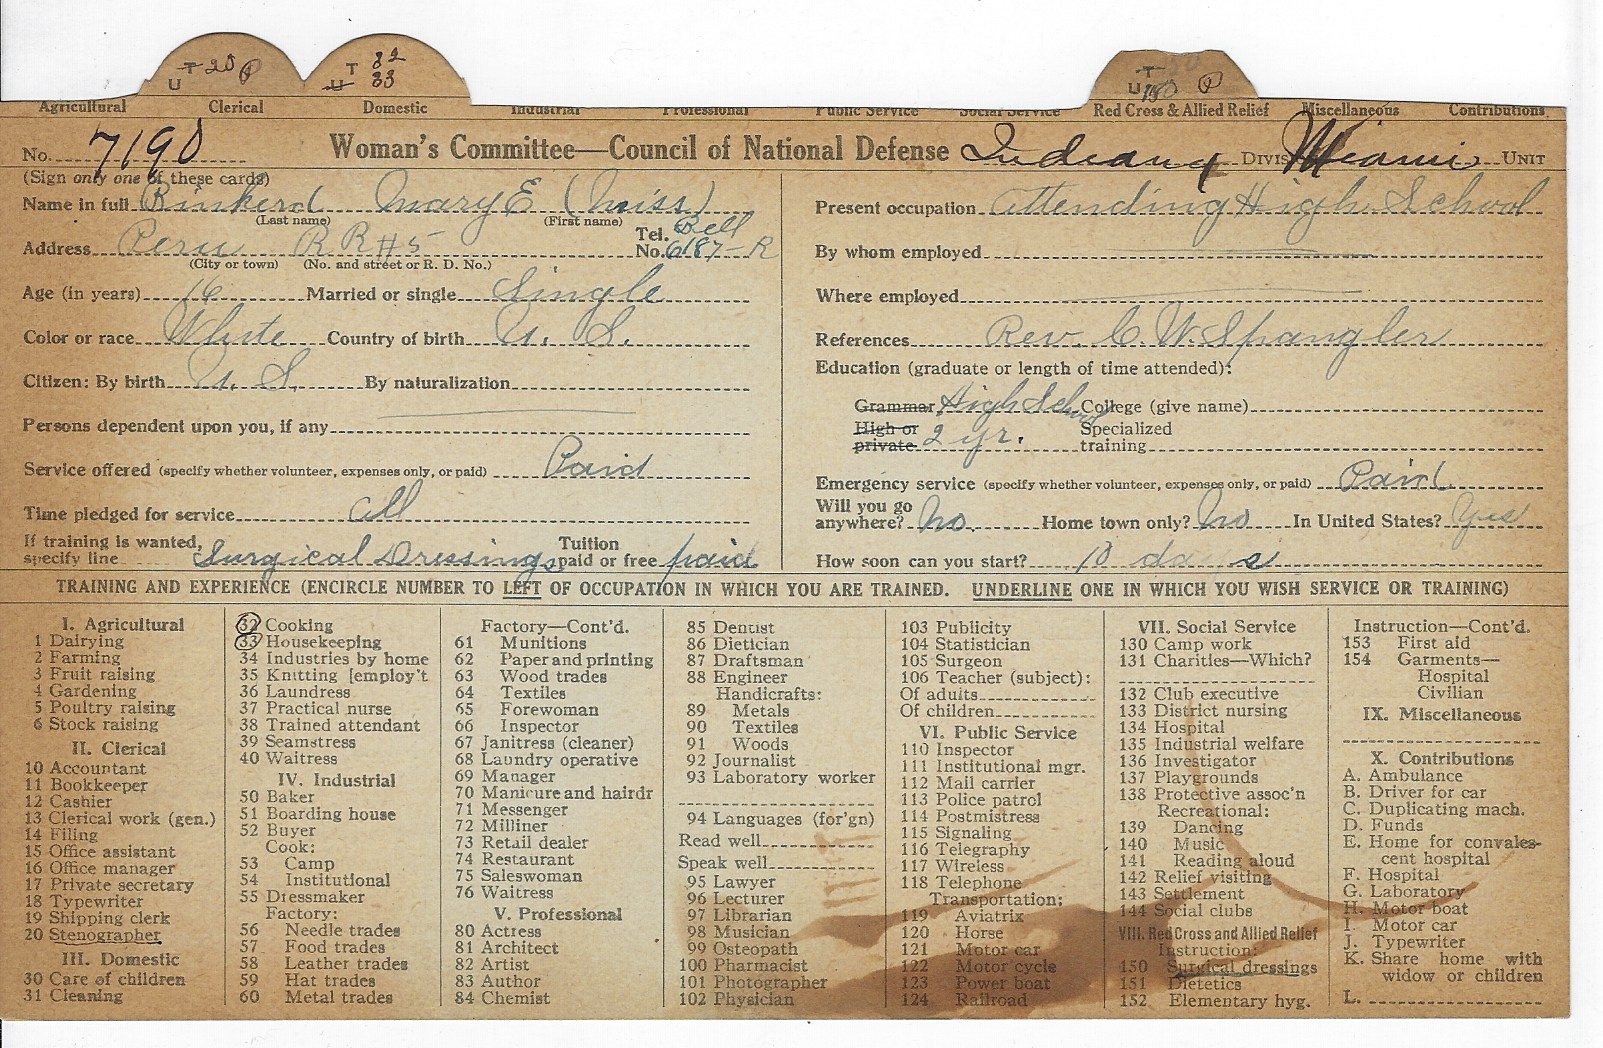 U T 20 P U T 32 33 U T 150 P
Agricultural Clerical Domestic Industrial Professional Public Service Social Service Red Cross & Allied Relief Miscellaneous Contributions
No. 7190 Woman's Committee—Council of National Defense Indiana DIVIS Miami UNIT
(Sign only one of these cards)
Name in full Binkerd Mary E (Miss)
(Last name) (First name)
Address Peru R R #5 Tel. No. Bell 6187-R
(City or town) (No. and street or R. D. No.)
Age (in years) 16 Married or single Single
Color or race White Country of birth U. S.
Citizen: By birth U. S. By naturalization
Persons dependent upon you, if any
Service offered (specify whether volunteer, expenses only, or paid) Paid
Time pledged for service all
If training is wanted, specify line Surgical Dressings Tuition paid or free paid
Present occupation attending High School
By whom employed
Where employed
References Rev. C. W. Spangler
Education (graduate or length of time attended):
Grammar High School College (give name)
High or private 2 yr. Specialized training
Emergency service (specify whether volunteer, expenses only, or paid) Paid
Will you go anywhere? No. Home town only? No In United States? Yes
How soon can you start? 10 days
TRAINING AND EXPERIENCE (ENCIRCLE NUMBER TO LEFT OF OCCUPATION IN WHICH YOU ARE TRAINED. UNDERLINE ONE IN WHICH YOU WISH SERVICE OR TRAINING)
I. Agricultural
1 Dairying
2 Farming
3 Fruit raising
4 Gardening
5 Poultry raising
6 Stock raising
II. Clerical
10 Accountant
11 Bookkeeper
12 Cashier
13 Clerical work (gen.)
14 Filing
15 Office assistant
16 Office manager
17 Private secretary
18 Typewriter
19 Shipping clerk
20 Stenographer
III. Domestic
30 Care of children
31 Cleaning
32 Cooking
33 Housekeeping
34 Industries by home
35 Knitting [employ't
36 Laundress
37 Practical nurse
38 Trained attendant
39 Seamstress
40 Waitress
IV. Industrial
50 Baker
51 Boarding house
52 Buyer
Cook:
53 Camp
54 Institutional
55 Dressmaker
Factory:
56 Needle trades
57 Food trades
58 Leather trades
59 Hat trades
60 Metal trades
Factory—Cont'd.
61 Munitions
62 Paper and printing
63 Wood trades
64 Textiles
65 Forewoman
66 Inspector
67 Janitress (cleaner)
68 Laundry operative
69 Manager
70 Manicure and hairdr
71 Messenger
72 Milliner
73 Retail dealer
74 Restaurant
75 Saleswoman
76 Waitress
V. Professional
80 Actress
81 Architect
82 Artist
83 Author
84 Chemist
85 Dentist
86 Dietician
87 Draftsman
88 Engineer
Handicrafts:
89 Metals
90 Textiles
91 Woods
92 Journalist
93 Laboratory worker
94 Languages (for'gn)
Read well
Speak well
95 Lawyer
96 Lecturer
97 Librarian
98 Musician
99 Osteopath
100 Pharmacist
101 Photographer
102 Physician
103 Publicity
104 Statistician
105 Surgeon
106 Teacher (subject):
Of adults
Of children
VI. Public Service
110 Inspector
111 Institutional mgr.
112 Mail carrier
113 Police patrol
114 Postmistress
115 Signaling
116 Telegraphy
117 Wireless
118 Telephone
Transportation:
119 Aviatrix
120 Horse
121 Motor car
122 Motor cycle
123 Power boat
124 Railroad
VII. Social Service
130 Camp work
131 Charities—Which?
132 Club executive
133 District nursing
134 Hospital
135 Industrial welfare
136 Investigator
137 Playgrounds
138 Protective assoc'n
Recreational:
139 Dancing
140 Music
141 Reading aloud
142 Relief visiting
143 Settlement
144 Social clubs
VIII. Red Cross and Allied Relief
Instruction:
150 Surgical dressings
151 Dietetics
152 Elementary hyg.
Instruction—Cont'd.
153 First aid
154 Garments—
Hospital
Civilian
IX. Miscellaneous
X. Contributions
A. Ambulance
B. Driver for car
C. Duplicating mach.
D. Funds
E. Home for convales-
cent hospital
F. Hospital
G. Laboratory
H. Motor boat
I. Motor car
J. Typewriter
K. Share home with
widow or children
L.